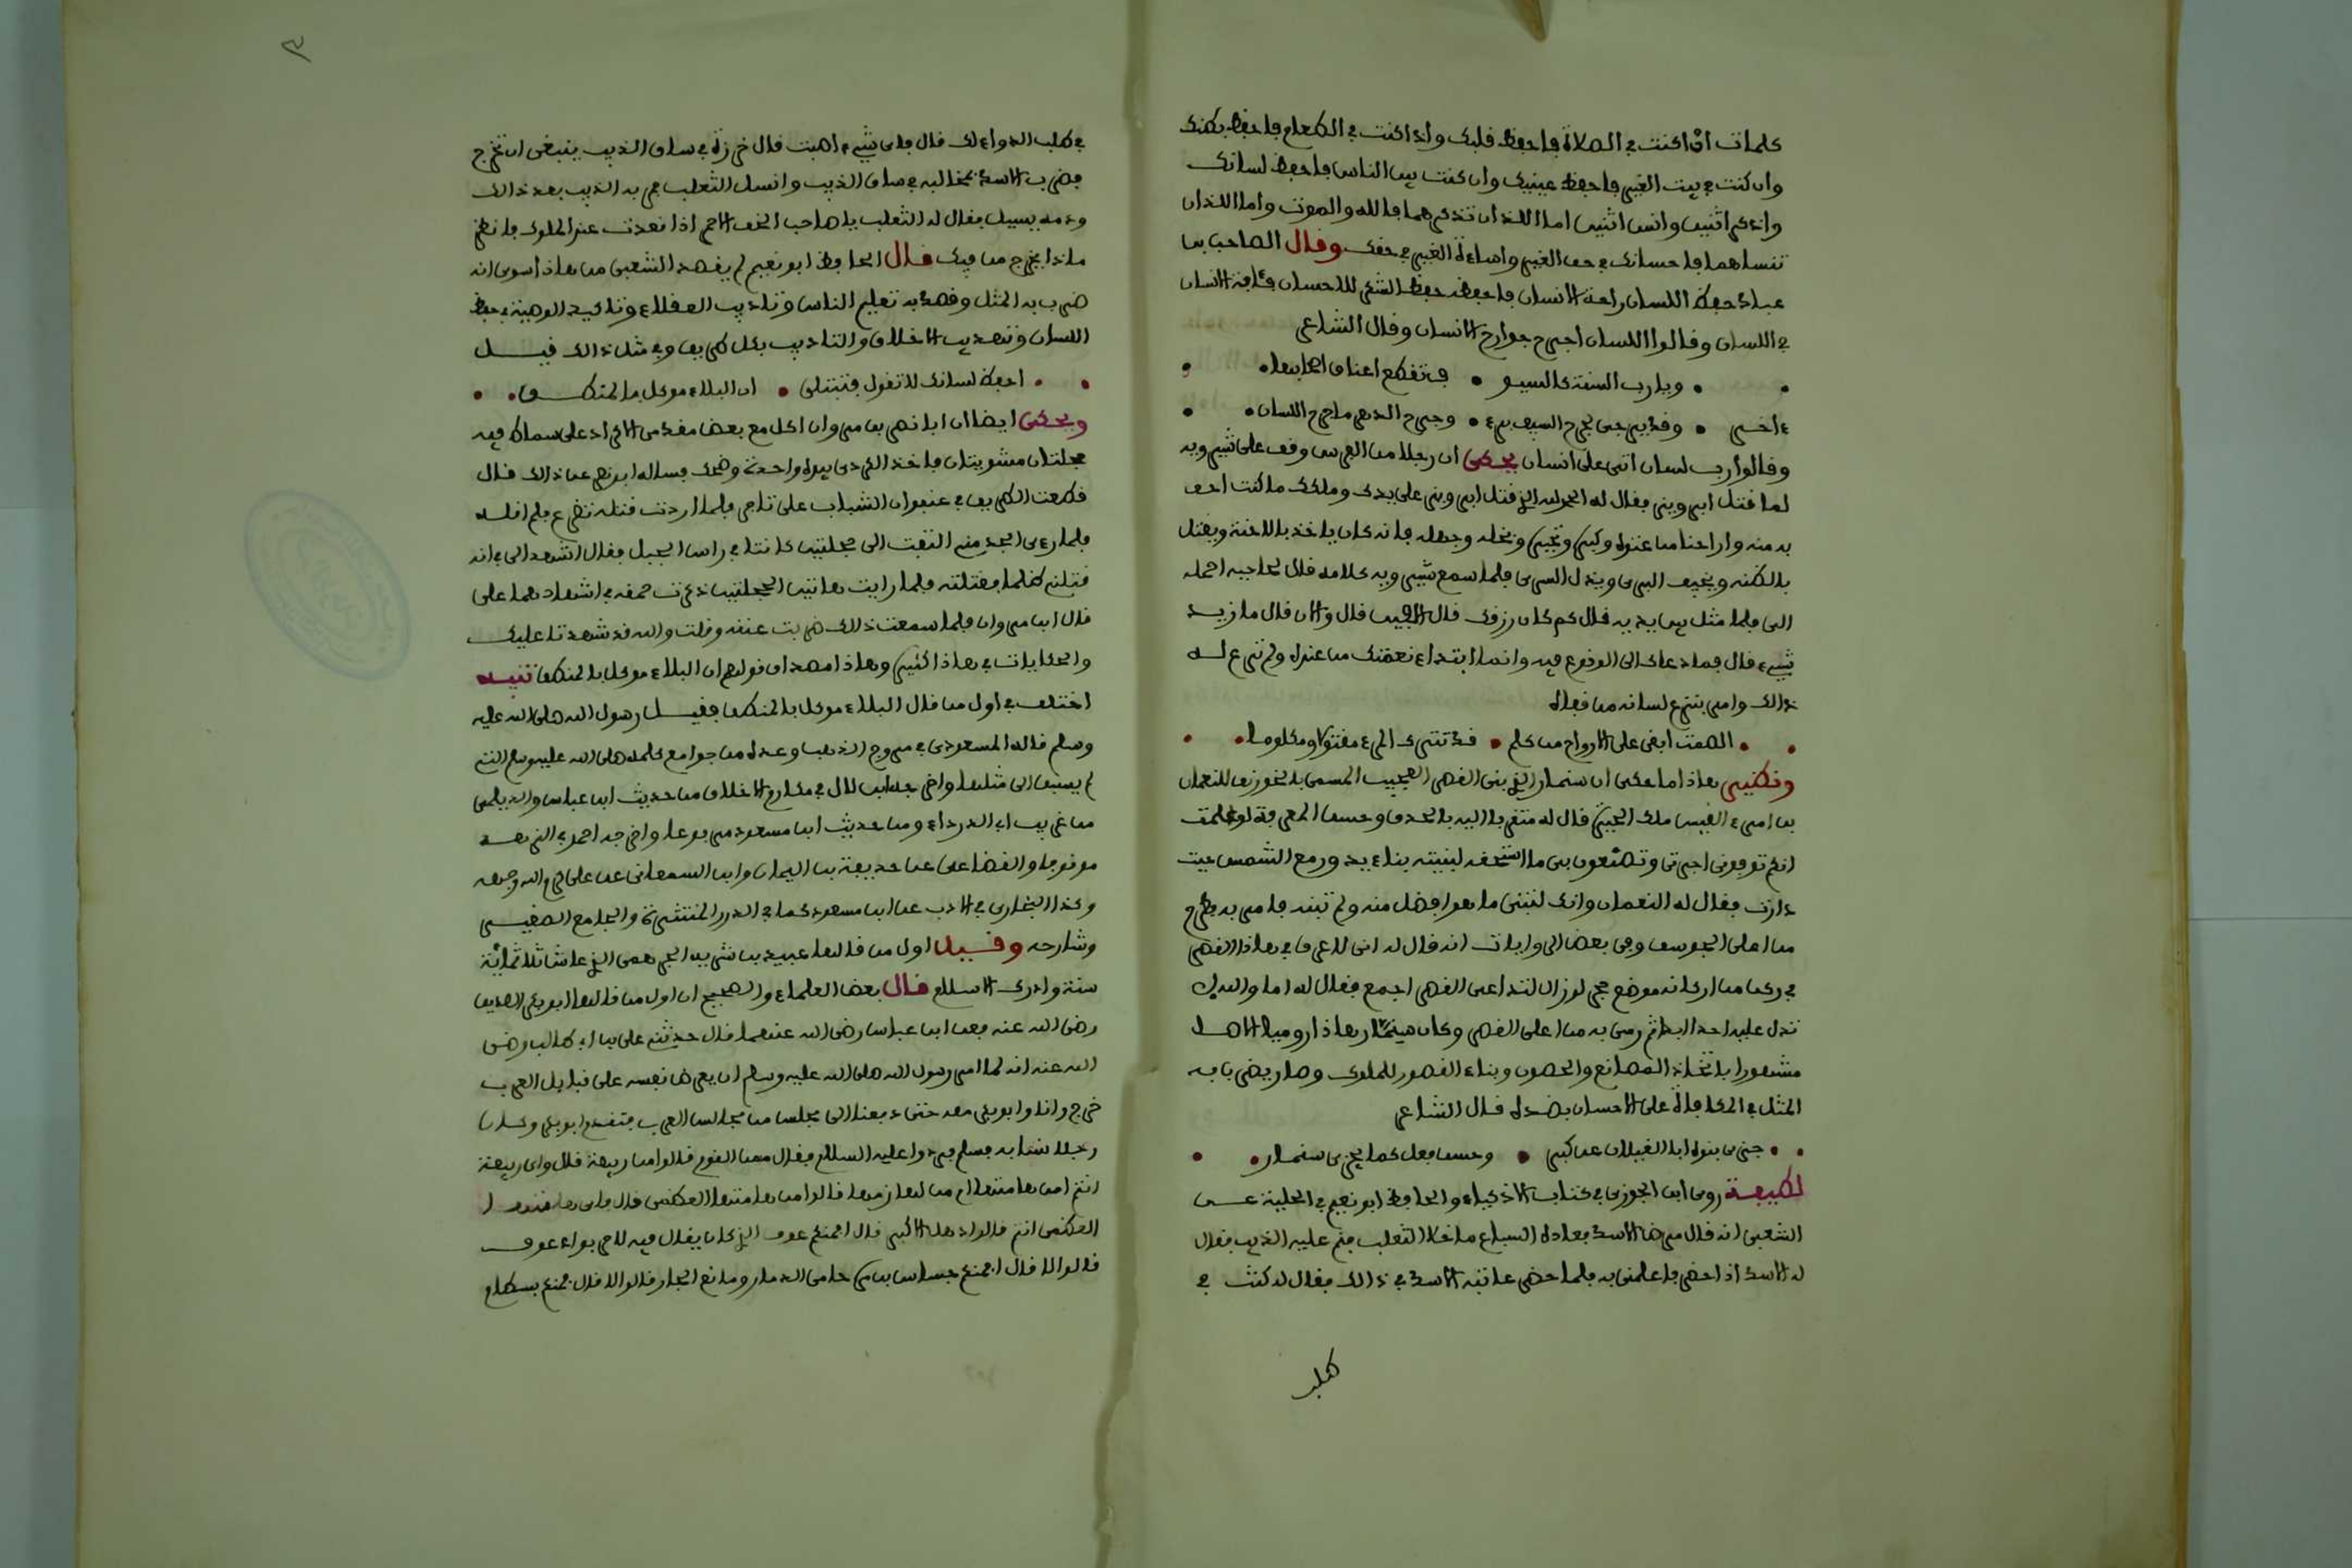 كلمات اذا كنت في الصلاة فاحفظ قلبك واذا كنت في الطعام فاحفظ بطنك
وان كنت في بيت الغير فاحفظ عينيك وان كنت بين الناس فاحفظ لسانك
واذكر اثنين وانس اثنين اما اللذان تذكرهما فالله والموت واما اللذان
تنساهما فاحسانك في حق الغير واساءة الغير في حقك وقال الصاحب بن
عباد حفظ اللسان راحة الانسان فاحفظه حفظ الشكر للاحسان فآفة الانسان
في اللسان وقالوا اللسان اجرح جوارح الانسان وقال الشاعر
ويا رب السنة كالسيو ف تقطع اعناق اصحابها
ءاخر وقد يرجى لجرح السيف برء وجرح الدهر ما جرح اللسان
وقالوا رب لسان اتى على انسان يحكى ان رجلا من الفرس وقف على شيرويه
لما قتل ابرويز فقال له الحمد لله الذي قتل ابرويز على يدك وملكك ما كنت احق
به منه واراحنا من عتوه وكبره وتجبره وبخله وجهله فانه كان ياخذ بالاحنة ويقتل
بالظنه ويخيف البري ويذل السري فلما سمع شيرويه كلامه قال لحاجبه احمله
الى فلما مثل بين يديه قال كم كان رزقك قال الفين قال والان قال ما زيد
شيء قال فما دعاك الى الوقوع فيه وانما ابتداء نعمتك من عنده ولم تنزع له
ذالك وامر بنزع لسانه من قفاه
الصمت ابقى على الارواح من كلم قد تترك المرء مقتولا ومكلوما
ونظير هاذا ما حكى ان سنمار الذي بنى القصر العجيب المسمى بالخورنق للنعمان
بن امرء القيس ملك الحيرة قال له متقربا اليه بالحذق وحسن المعرفة لو علمت
انكم توفوني اجرتي وتصنعون بي ما استحقه لبنيته بناء يدور مع الشمس حيث
دارت فقال له النعمان وانك لتبني ما هو افضل منه ولم تبنه فامر به فطرح
من اعلى الجوسق وفي بعض الروايات انه قال له اني لاعرف في هاذا القصر
في ركن من اركانه موضع حجر لو زال لتداعى القصر اجمع فقال له اما والله لا
تدل عليه احدا ابدا ثم رمى به من اعلى القصر وكان سنمار هاذا روميا اصلا
مشهورا باتخاذ المصانع والحصون وبناء القصور للملوك وصار يضرب به
المثل في المكافاة على الاحسان بضده قال الشاعر
جزى بنوه ابا الغيلان عن كبر وحسن فعل كما يجزى سنمار
لطيفة روى ابن الجوزي في كتاب الاذكياء والحافظ ابو نعيم في الحلية عن
الشعبي انه قال مرض الاسد فعاده السباع ما خلا الثعلب فنم عليه الذيب فقال
له الاسد اذا حضر فاعلمني به فلما حضر عاتبه الاسد في ذالك فقال له كنت في
طلب
في طلب الدواء لك قال فاي شيء اصبت قال خرزة في ساق الذيب ينبغي ان تخرج
فضرب الاسد بمخالبه في ساق الذيب وانسل الثعلب فمر به الذيب بعد ذالك
ودمه يسيل فقال له الثعلب يا صاحب الخف الاحمر اذا قعدت عند الملوك فانظر
ماذا يخرج من فيك قال الحافظ ابو نعيم لم يقصد الشعبي من هاذا سوى انه
ضرب به المثل وقصد به تعليم الناس وتاديب العقلاء وتاكيد الوصية في حفظ
اللسان وتهذيب الاخلاق والتاديب بكل طريق وفي مثل ذالك قيل
احفظ لسانك لا تقول فتبتلى ان البلاء موكل بالمنطق
ويحكى ايضا ان ابا نصر بن مروان اكل مع بعض مقدمي الاكراد على سماط فيه
حجلتان مشويتان فاخذ الكردي بيده واحدة وضحك فساله ابو نصر عن ذالك قال
قطعت الطريق في عنفوان الشباب على تاجر فلما اردت قتله تضرع فلم اقله
فلما رءى الجد مني التفت الى حجلتين كانتا في راس الجبل فقال اشهدا لي انه
قتلني ظلما فقتلته فلما رايت هاتين الحجلتين ذكرت حمقه في اشهادهما علي
قال ابن مروان فلما سمعت ذالك ضربت عنقه وقلت والله قد شهدتا عليك
والحكايات في هاذا كثير وهاذا مصداق قولهم ان البلاء موكل بالمنطق تنبيه
اختلف في اول من قال البلاء موكل بالمنطق فقيل رسول الله صلى الله عليه
وسلم قاله المسعودي في مروج الذهب وعده من جوامع كلمه صلى الله عليه وسلم التي
لم يسبق الى مثلها واخرجه ابن لال في مكارم الاخلاق من حديث ابن عباس والديلمي
من غريب ابي الدرداء ومن حديث ابن مسعود مرفوعا واخرجه احمد في الزهد
موقوفا والقضاعي عن حذيفة بن اليمان وابن السمعاني عن علي كرم الله وجهه
وكذا البخاري في الادب عن ابن مسعود كما في الدرر المنتثرة والجامع الصغير
وشارحه وقيل اول من قالها عبيد بن شرية الجرهمي الذي عاش ثلاثمائة
سنة وادرك الاسلام قال بعض العلماء والصحيح ان اول من قالها ابو بكر الصديق
رضي الله عنه فعن ابن عباس رضي الله عنهما قال حدثني علي بن ابي طالب رضي
الله عنه انه لما امر رسول الله صلى الله عليه وسلم ان يعرض نفسه على قبايل العرب
خرج وانا وابو بكر معه حتى دفعنا الى مجلس من مجالس العرب فتقدم ابو بكر وكان
رجلا نسابه فسلم فردوا عليه السلام فقال ممن القوم قالوا من ربيعة قال واي ربيعة
انتم امن هامتها ام من لهازمها قالوا من هامتها العظمى قال فاي هامتها
العظمى انتم قالوا ذهل الاكبر قال افمنكم عوف الذي كان يقال فيه لا حر بواد عوف
قالوا لا قال افمنكم جساس بن مرة حامي الذمار ومانع الجار قالوا لا قال فمنكم بسطام